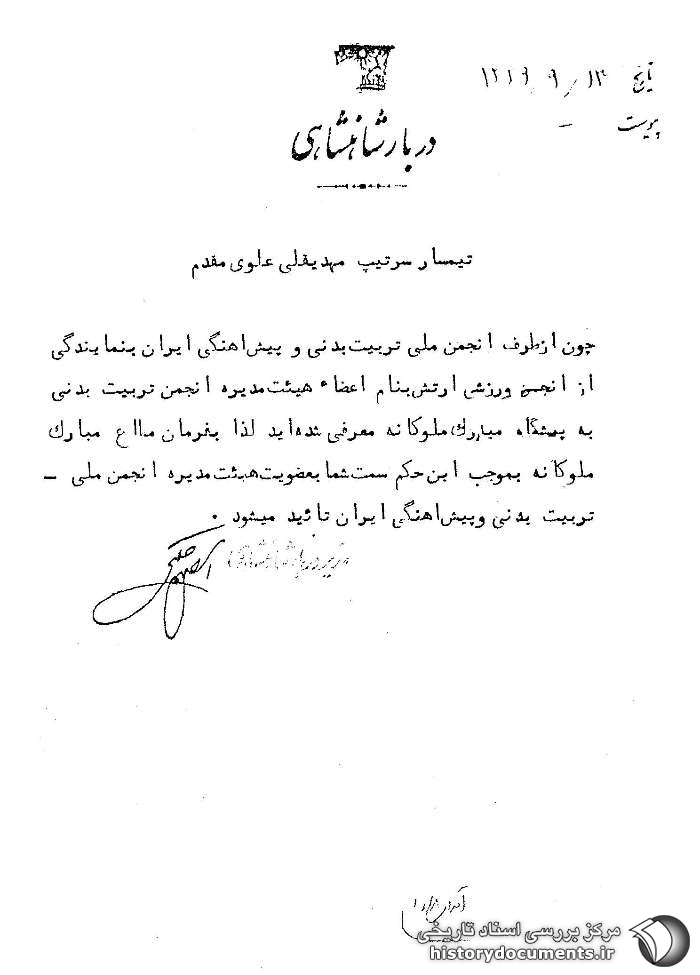 تاریخ ۱۳ / ۹ / ۱۳۲۹
پیوست –
دربار شاهنشاهی
تیمسار سرتیپ مهدیقلی علوی مقدم
چون ازطرف انجمن ملی تربیت بدنی و پیش‌اهنگی ایران بنمایندگی
از انجمن ورزشی ارتش بنام اعضاء هیئت مدیره انجمن تربیت بدنی
به پیشگاه مبارك ملوکانه معرفی شده‌اید لذا بفرمان مطاع مبارك
ملوکانه بموجب این حکم سمت شما بعضویت هیئت مدیره انجمن ملی –
تربیت بدنی و پیش‌اهنگی ایران تائید میشود .
وزیر دربار شاهنشاهی
مرکز بررسی اسناد تاریخی
historydocuments.ir